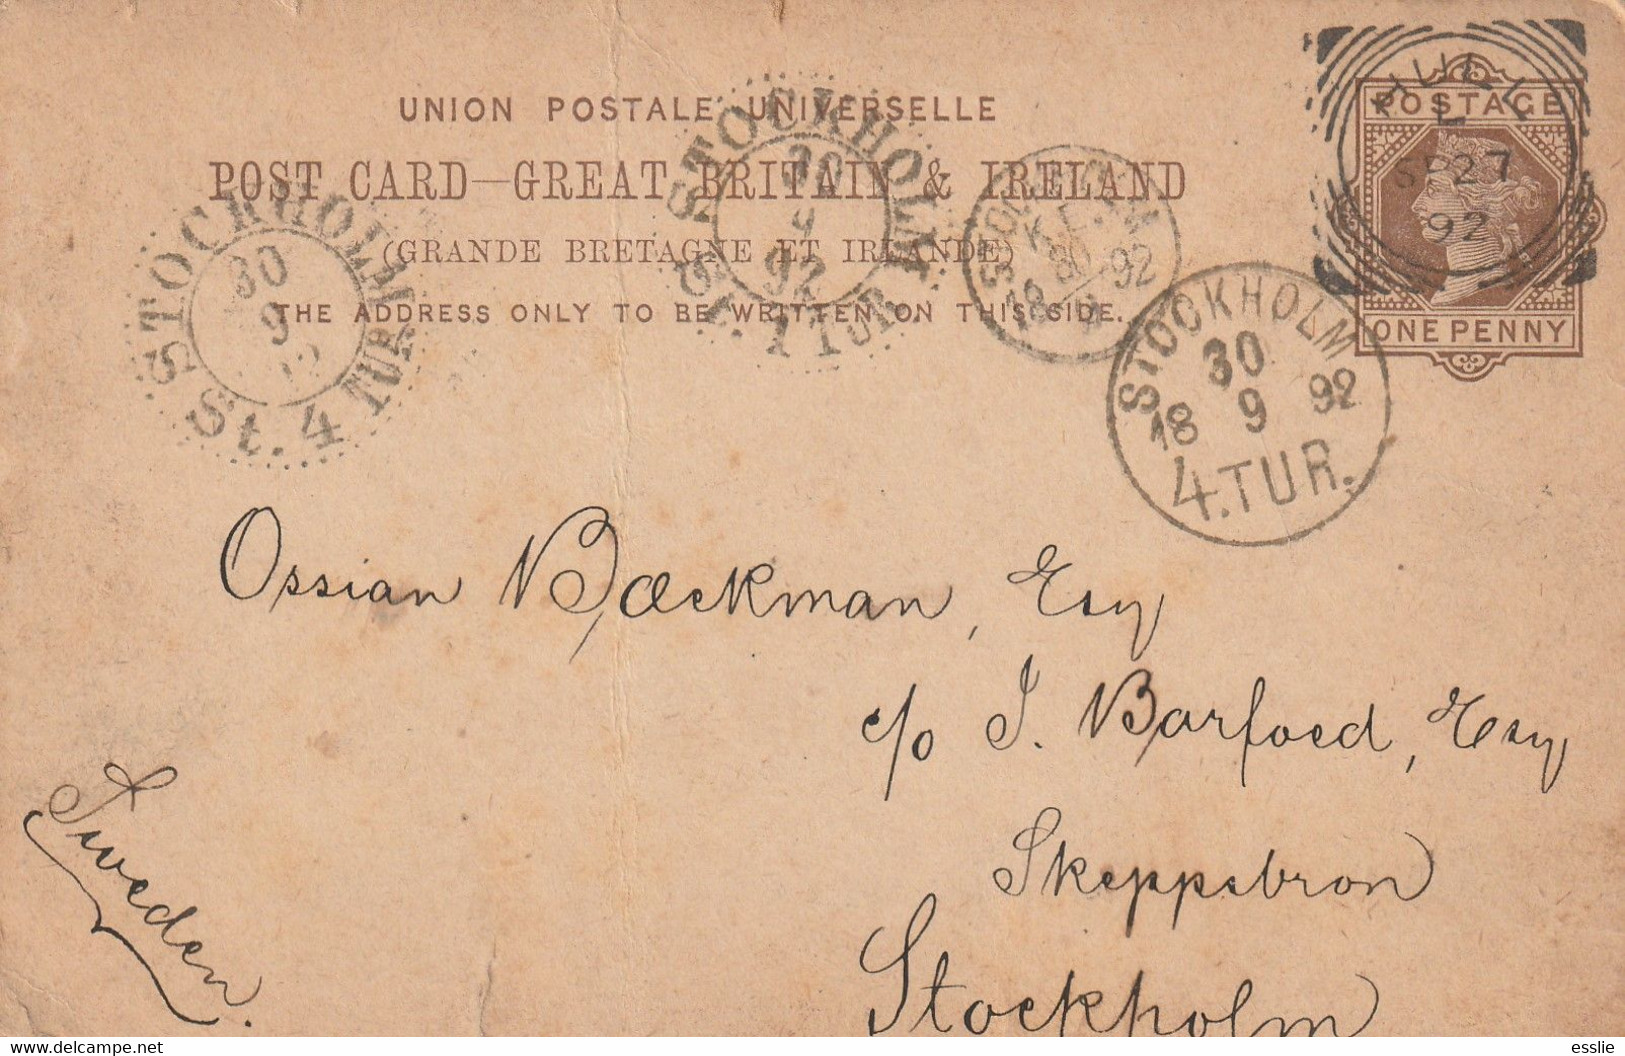 UNION POSTALE UNIVERSELLE
POST CARD—GREAT BRITAIN & IRELAND
(GRANDE BRETAGNE ET IRLANDE)
THE ADDRESS ONLY TO BE WRITTEN ON THIS SIDE.
POSTAGE
ONE PENNY
HULL
L
SP 27
92
STOCKHOLM
30
9
92
St. 4 TUR
STOCKHOLM
30
9
92
St. 1 TUR
STOCKHOLM
18 30 92
STOCKHOLM
30
18 9 92
4. TUR.
Ossian Bæckman, Esq
c/o J. Barfoed, Esq
Skeppsbron
Stockholm
Sweden.
www.delcampe.net
esslie